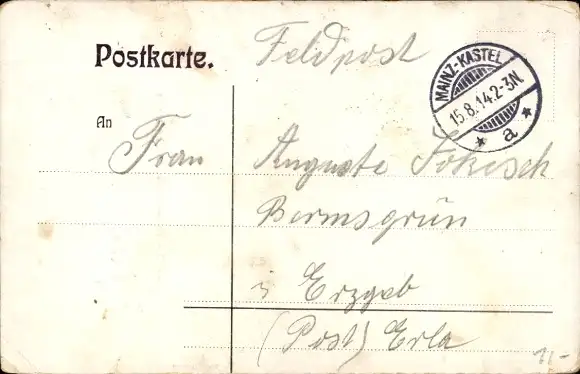 Postkarte.
Feldpost
MAINZ-KASTEL
15.8.14.2-3N.
* a *
An
Frau Auguste Fökisch
Bermsgrün
i Erzgeb
(Post) Erla
11-